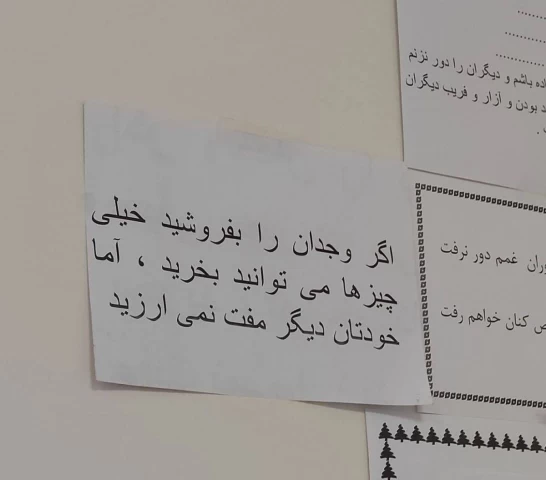 اگر وجدان را بفروشید خیلی
چیزها می توانید بخرید ، آما
خودتان دیگر مفت نمی ارزید
باشم و دیگران را دور نزنم
بودن و آزار و فریب دیگران
غمم دور نرفت
کنان خواهم رفت